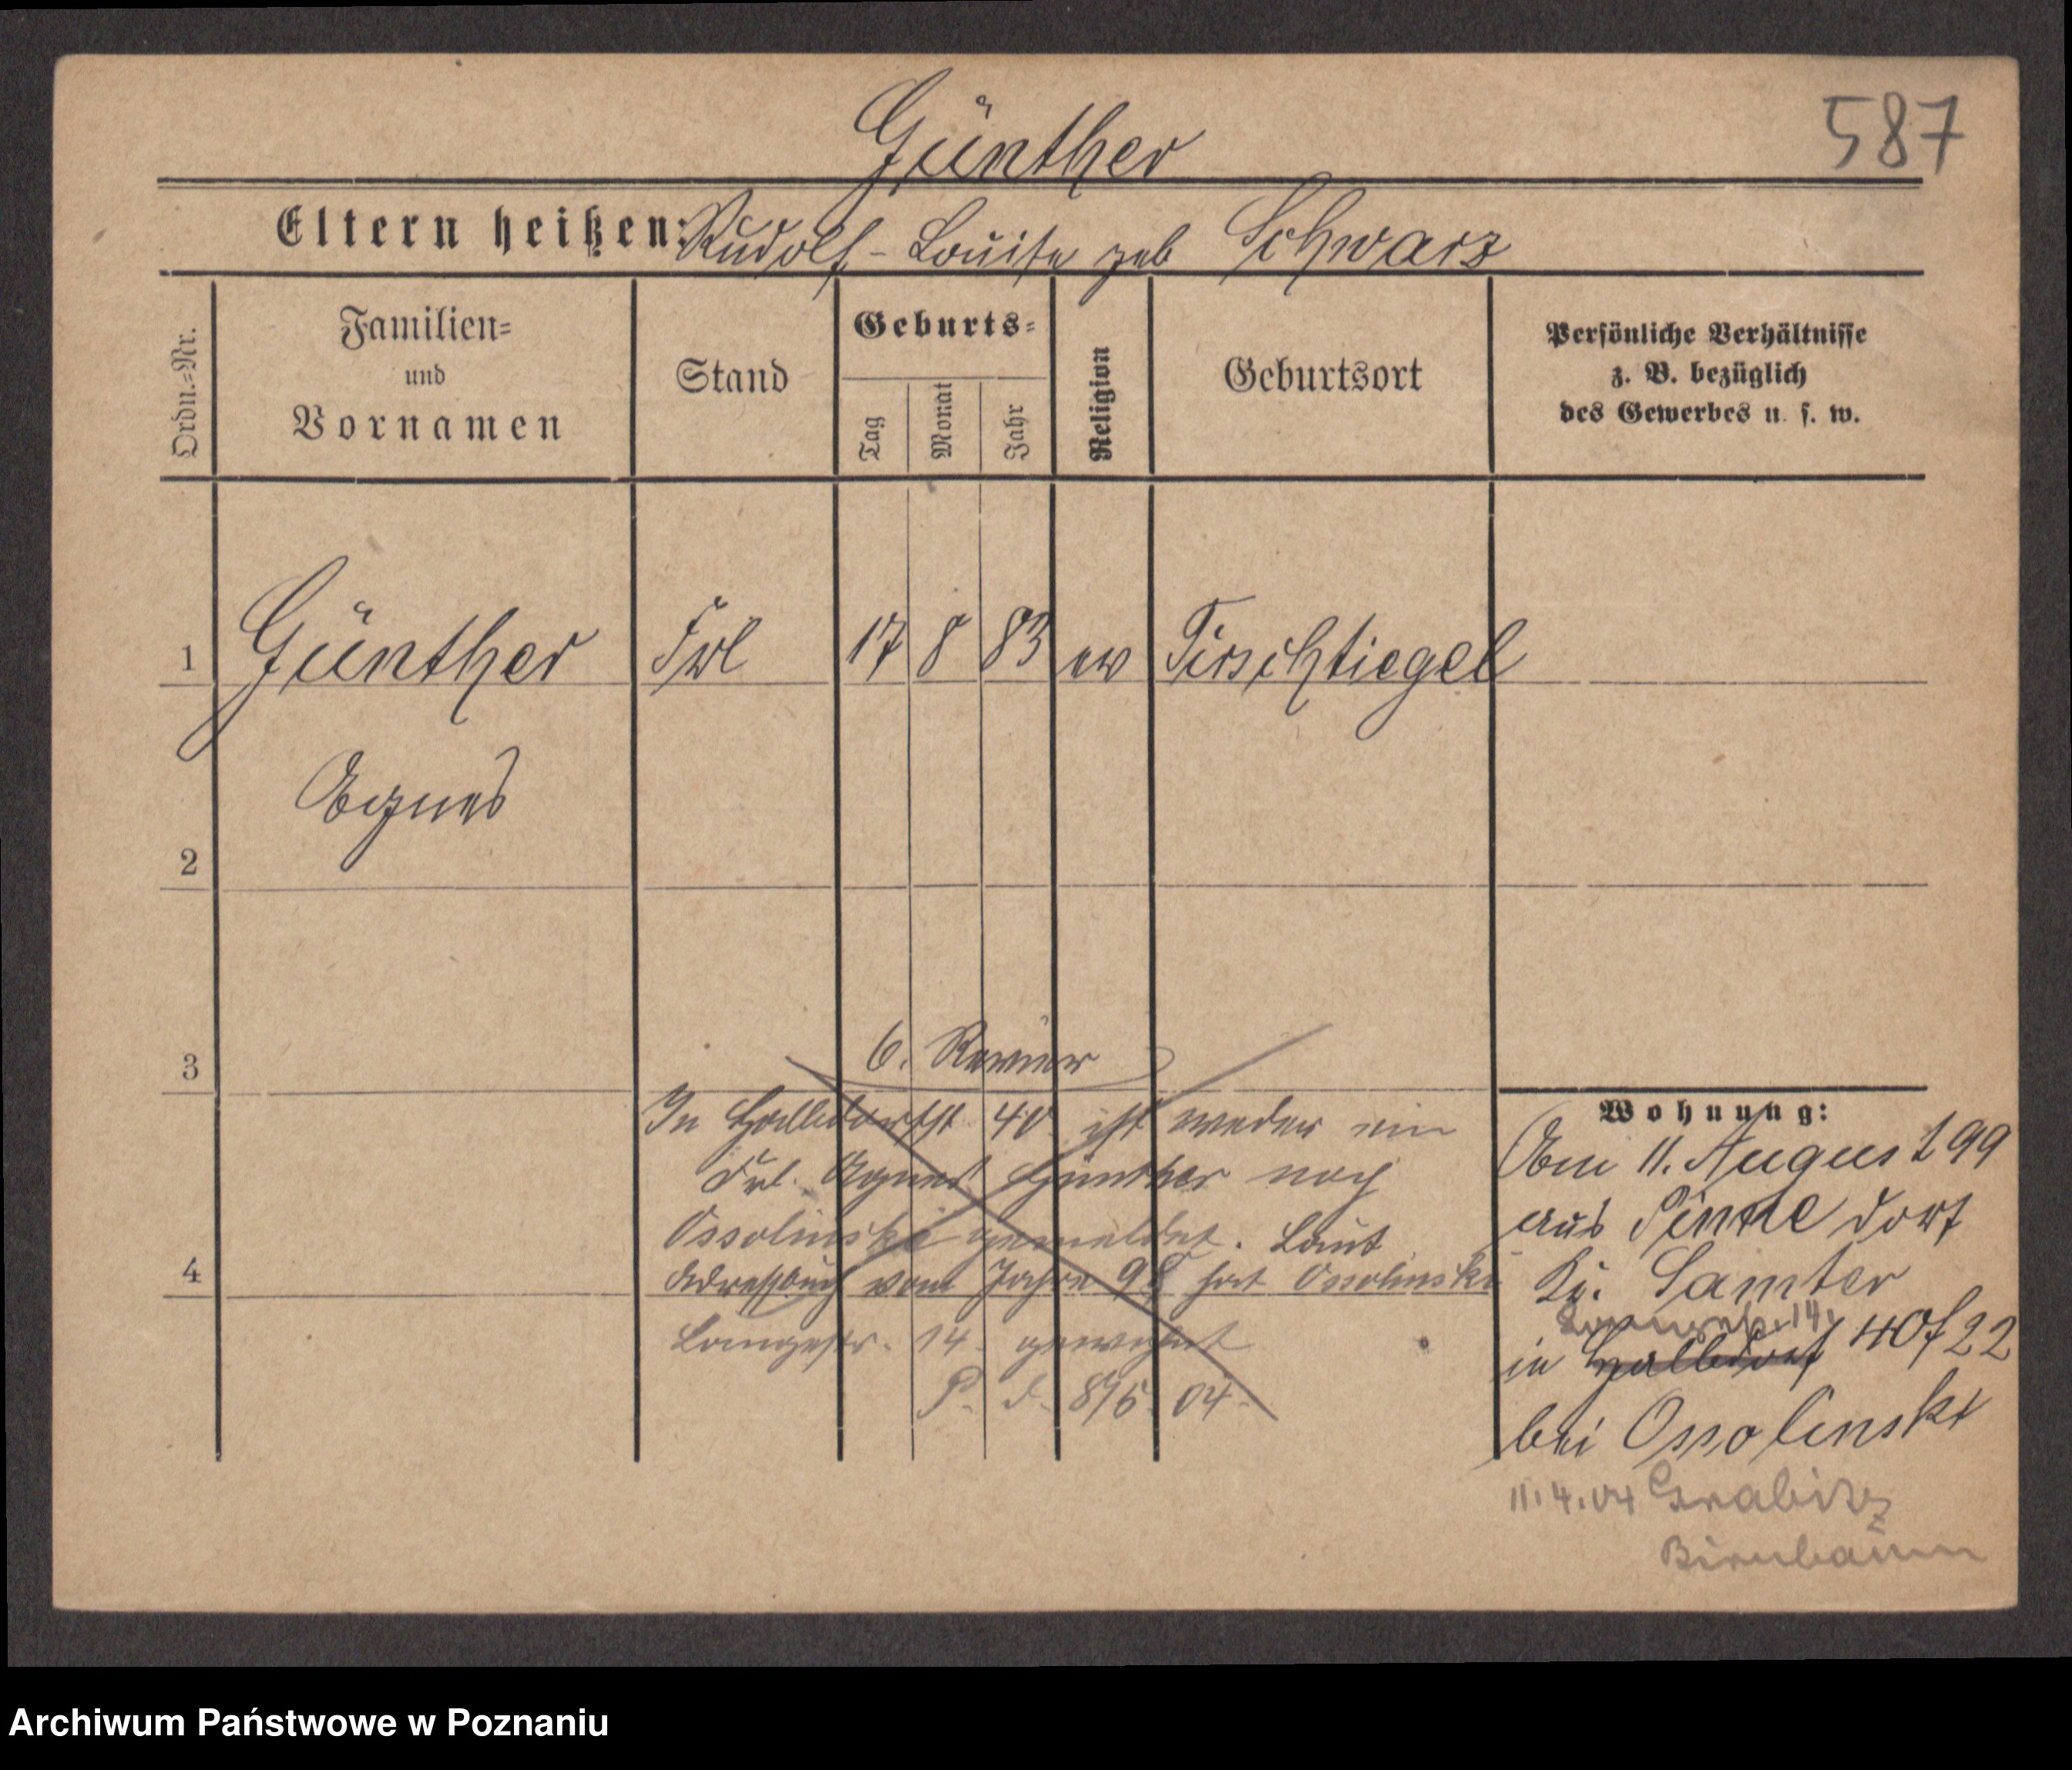 Günther
587
Eltern heißen: Rudolf - Louise geb Schwarz
Ordn.=Nr.
Familien=
und
Vornamen
Stand
Geburts=
Tag
Monat
Jahr
Religion
Geburtsort
Persönliche Verhältnisse
z. B. bezüglich
des Gewerbes u. s. w.
1 Günther Frl 17 8 83 ev Tirschtiegel
Agnes
2
3
6. Revier
In Halbdorfst 40 ist weder ein
Frl. Agnes Günther noch
Ossolinski gemeldet. Laut
4
Adressbuch vom Jahre 98 hat Ossolinski
Langestr. 14 gewohnt
P. d. 8/5 04.
Wohnung:
Am 11. August 99
aus Pinne dorf
Kr. Samter
14.
in Halbdorf 40 f 22
bei Ossolinski
11.4.04 Grabitz
Birnbaum
Archiwum Państwowe w Poznaniu